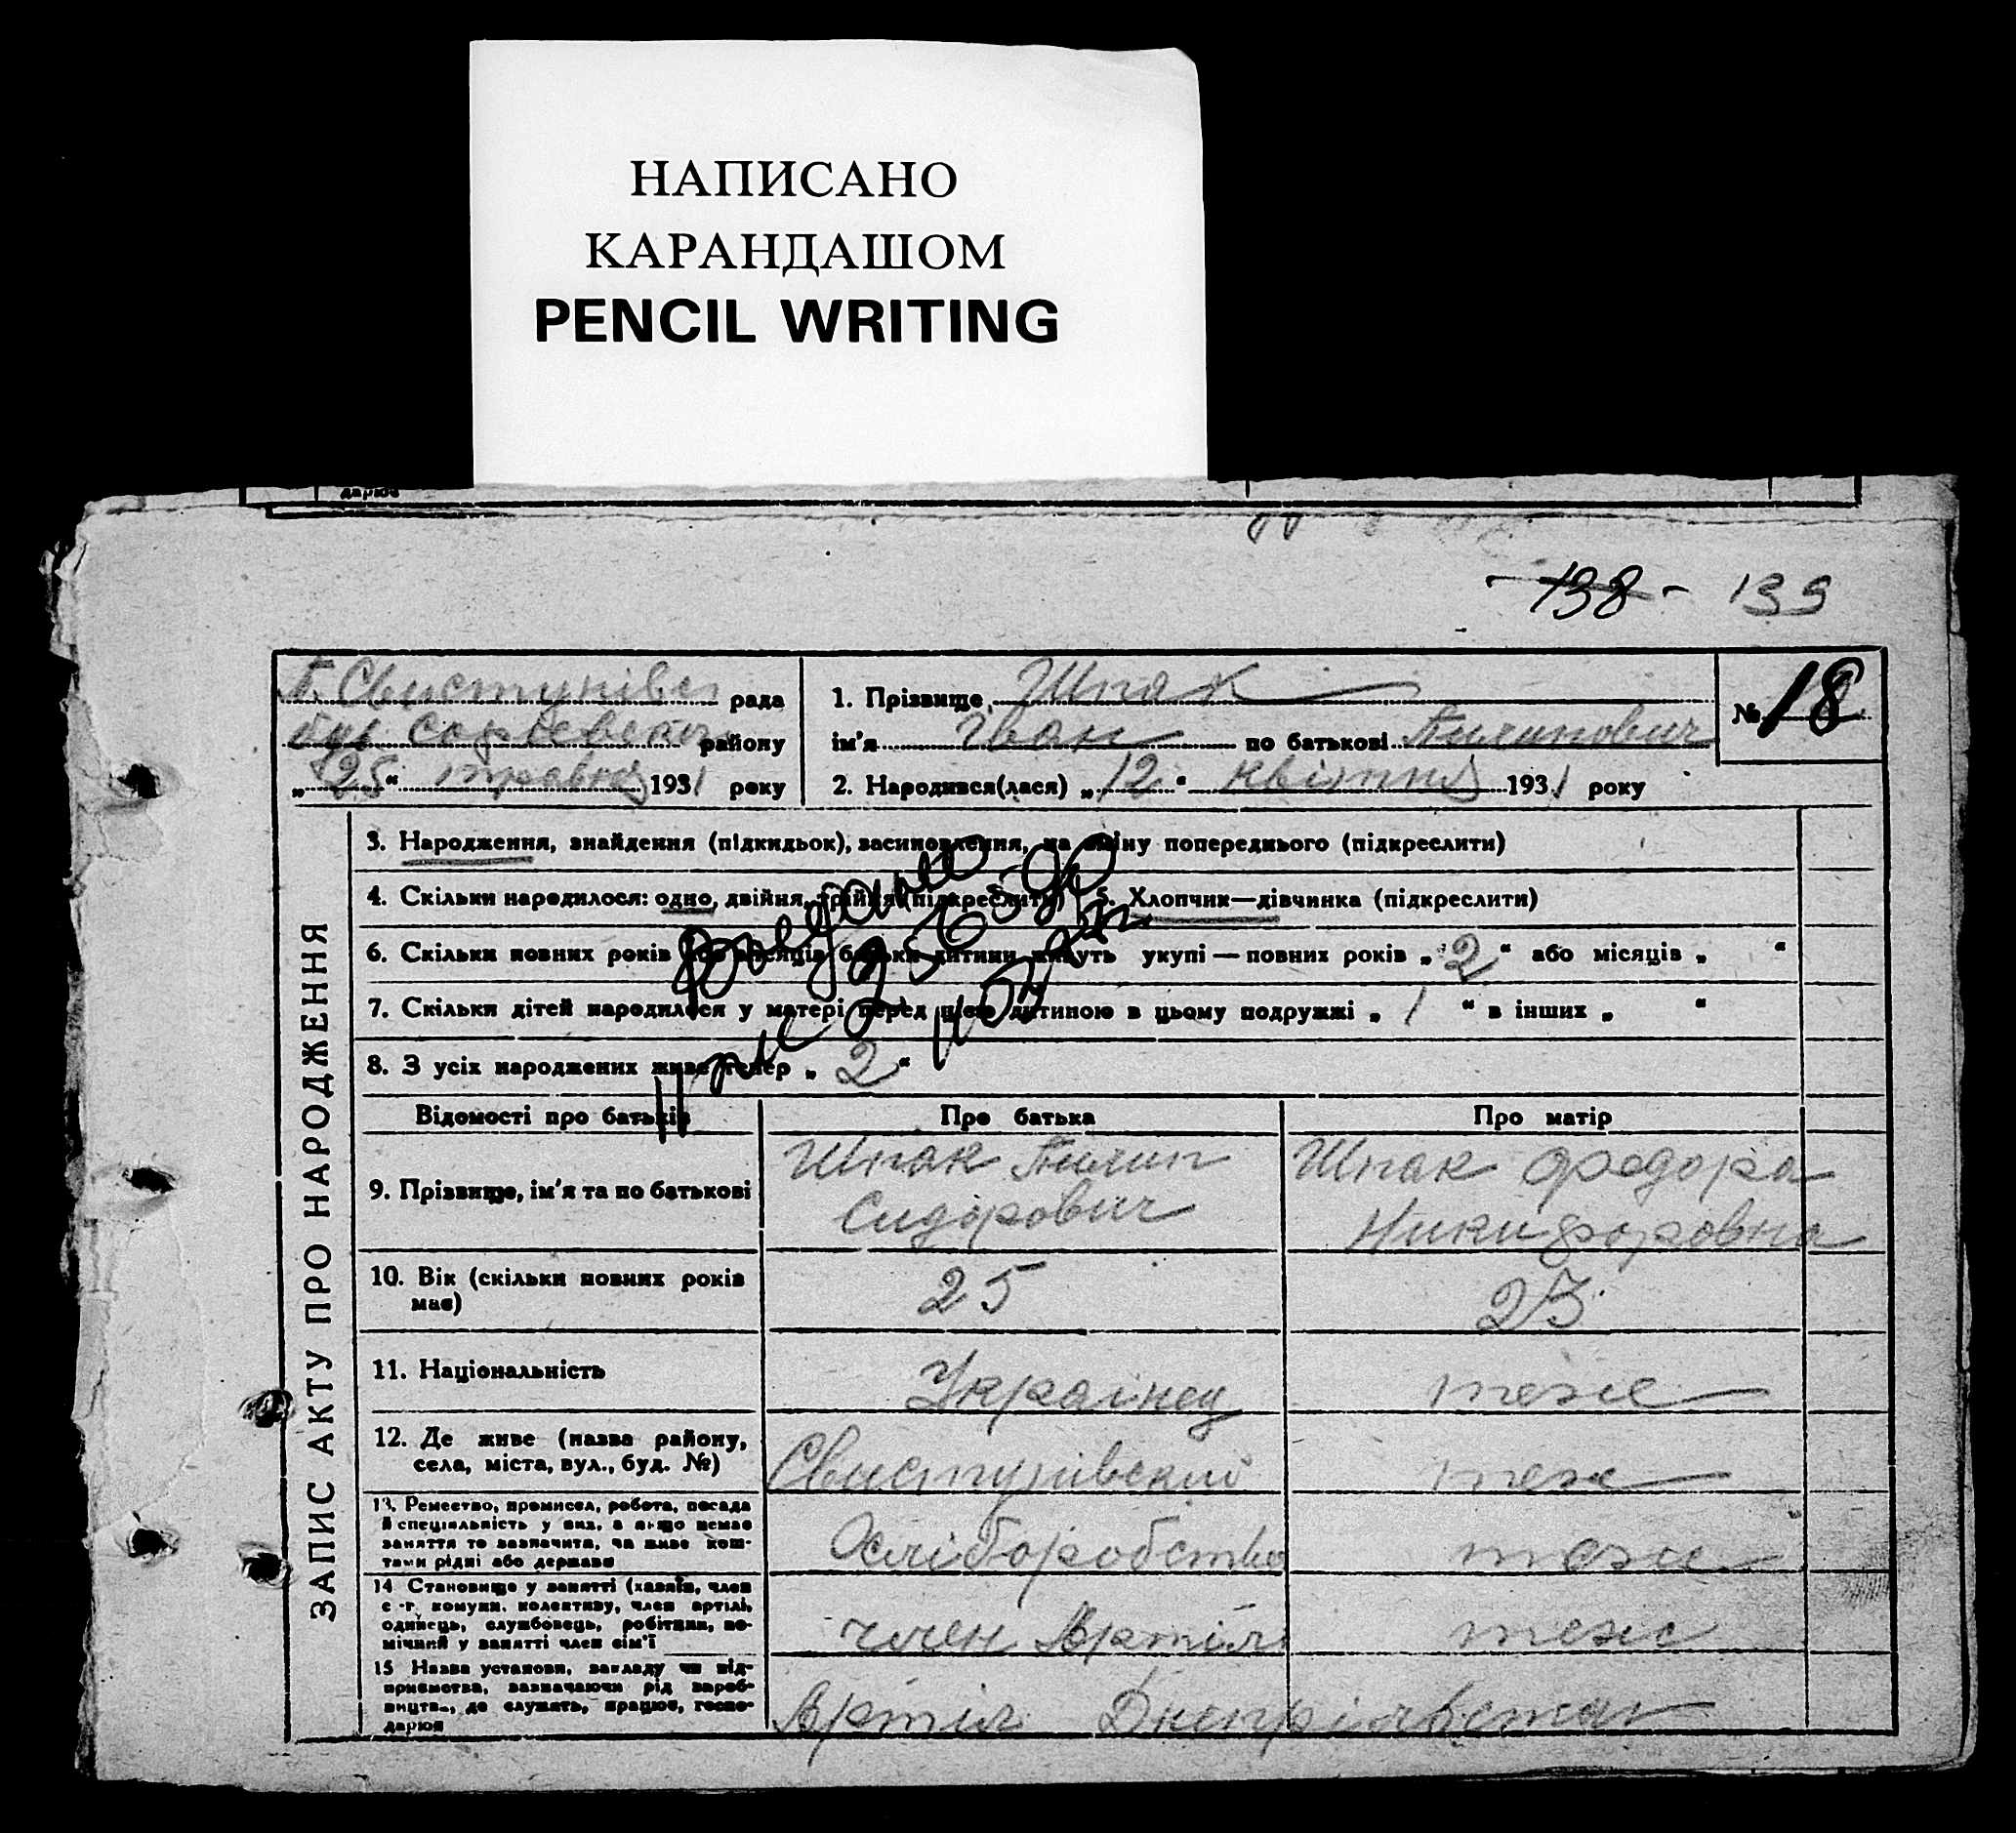 НАПИСАНО
КАРАНДАШОМ
PENCIL WRITING
дарює
- 138 - 139
Свистунівс рада
району
„25“ травня 1931 року
1. Прізвище Шпак
ім'я Іван по батькові Пилипович
2. Народився(лася) „12“ квітня 1931 року
№ 18
ЗАПИС АКТУ ПРО НАРОДЖЕННЯ
3. Народження, знайдення (підкидьок), засиновлення, на зміну попереднього (підкреслити)
4. Скільки народилося: одно, двійня, трійня (підкреслити) 5. Хлопчик—дівчинка (підкреслити)
6. Скільки повних років або місяців батьки дитини живуть укупі — повних років „2“ або місяців „ “
7. Скільки дітей народилося у матері перед цією дитиною в цьому подружжі „1“ в інших „ “
8. З усіх народжених живе тепер „2“
Відомості про батьків Про батька Про матір
9. Прізвище, ім'я та по батькові
Шпак Пилип
Сидорович
Шпак Федора
Никифоровна
10. Вік (скільки повних років
має)
25
23
11. Національність
Украінец
теже
12. Де живе (назва району,
села, міста, вул., буд. №)
Свистунівский
теже
13. Ремество, промисел, робота, посада
й спеціяльність у них, а якщо немає
заняття то зазначити, чи живе кош-
тами рідні або держави
Хліборобство
теже
14 Становище у занятті (хазяїн, член
с.-г. комуни, колективу, член артілі,
одинець, службовець, робітник, по-
мічний у занятті член сім'ї
член Артілі
теже
15 Назва установи, закладу чи під-
приємства, зазначаючи рід вироб-
ництв., де служить, працює, госпо-
дарює
Артіл